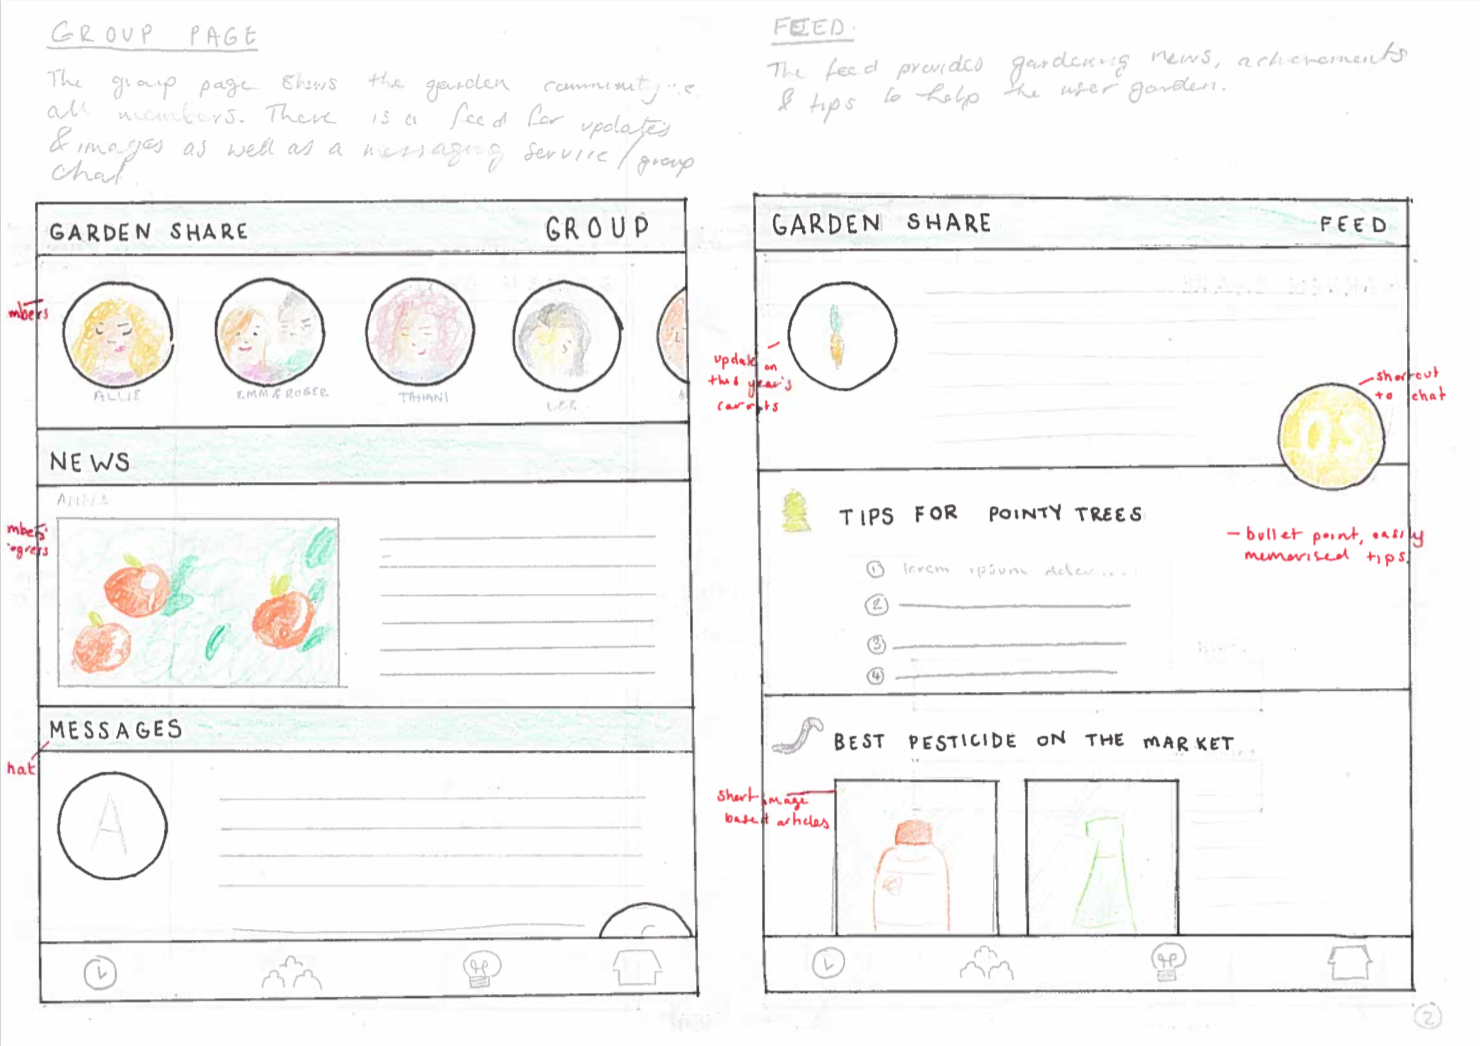 GROUP PAGE
The group page shows the garden community i.e.
all members. There is a feed for updates
& images as well as a messaging service / group
chat
GARDEN SHARE GROUP
mbers
ALLIE EMM & ROGER TAHANI LEE
NEWS
ANNA
mbers'
ogress
MESSAGES
hat
A
FEED.
The feed provides gardening news, achievements
& tips to help the user garden.
GARDEN SHARE FEED
update on
this year's
carrots
shortcut
to chat
TIPS FOR POINTY TREES
- bullet point, easily
memorised tips
1 lorem ipsum dolor....
2
3
4
BEST PESTICIDE ON THE MARKET
short image
based articles
2